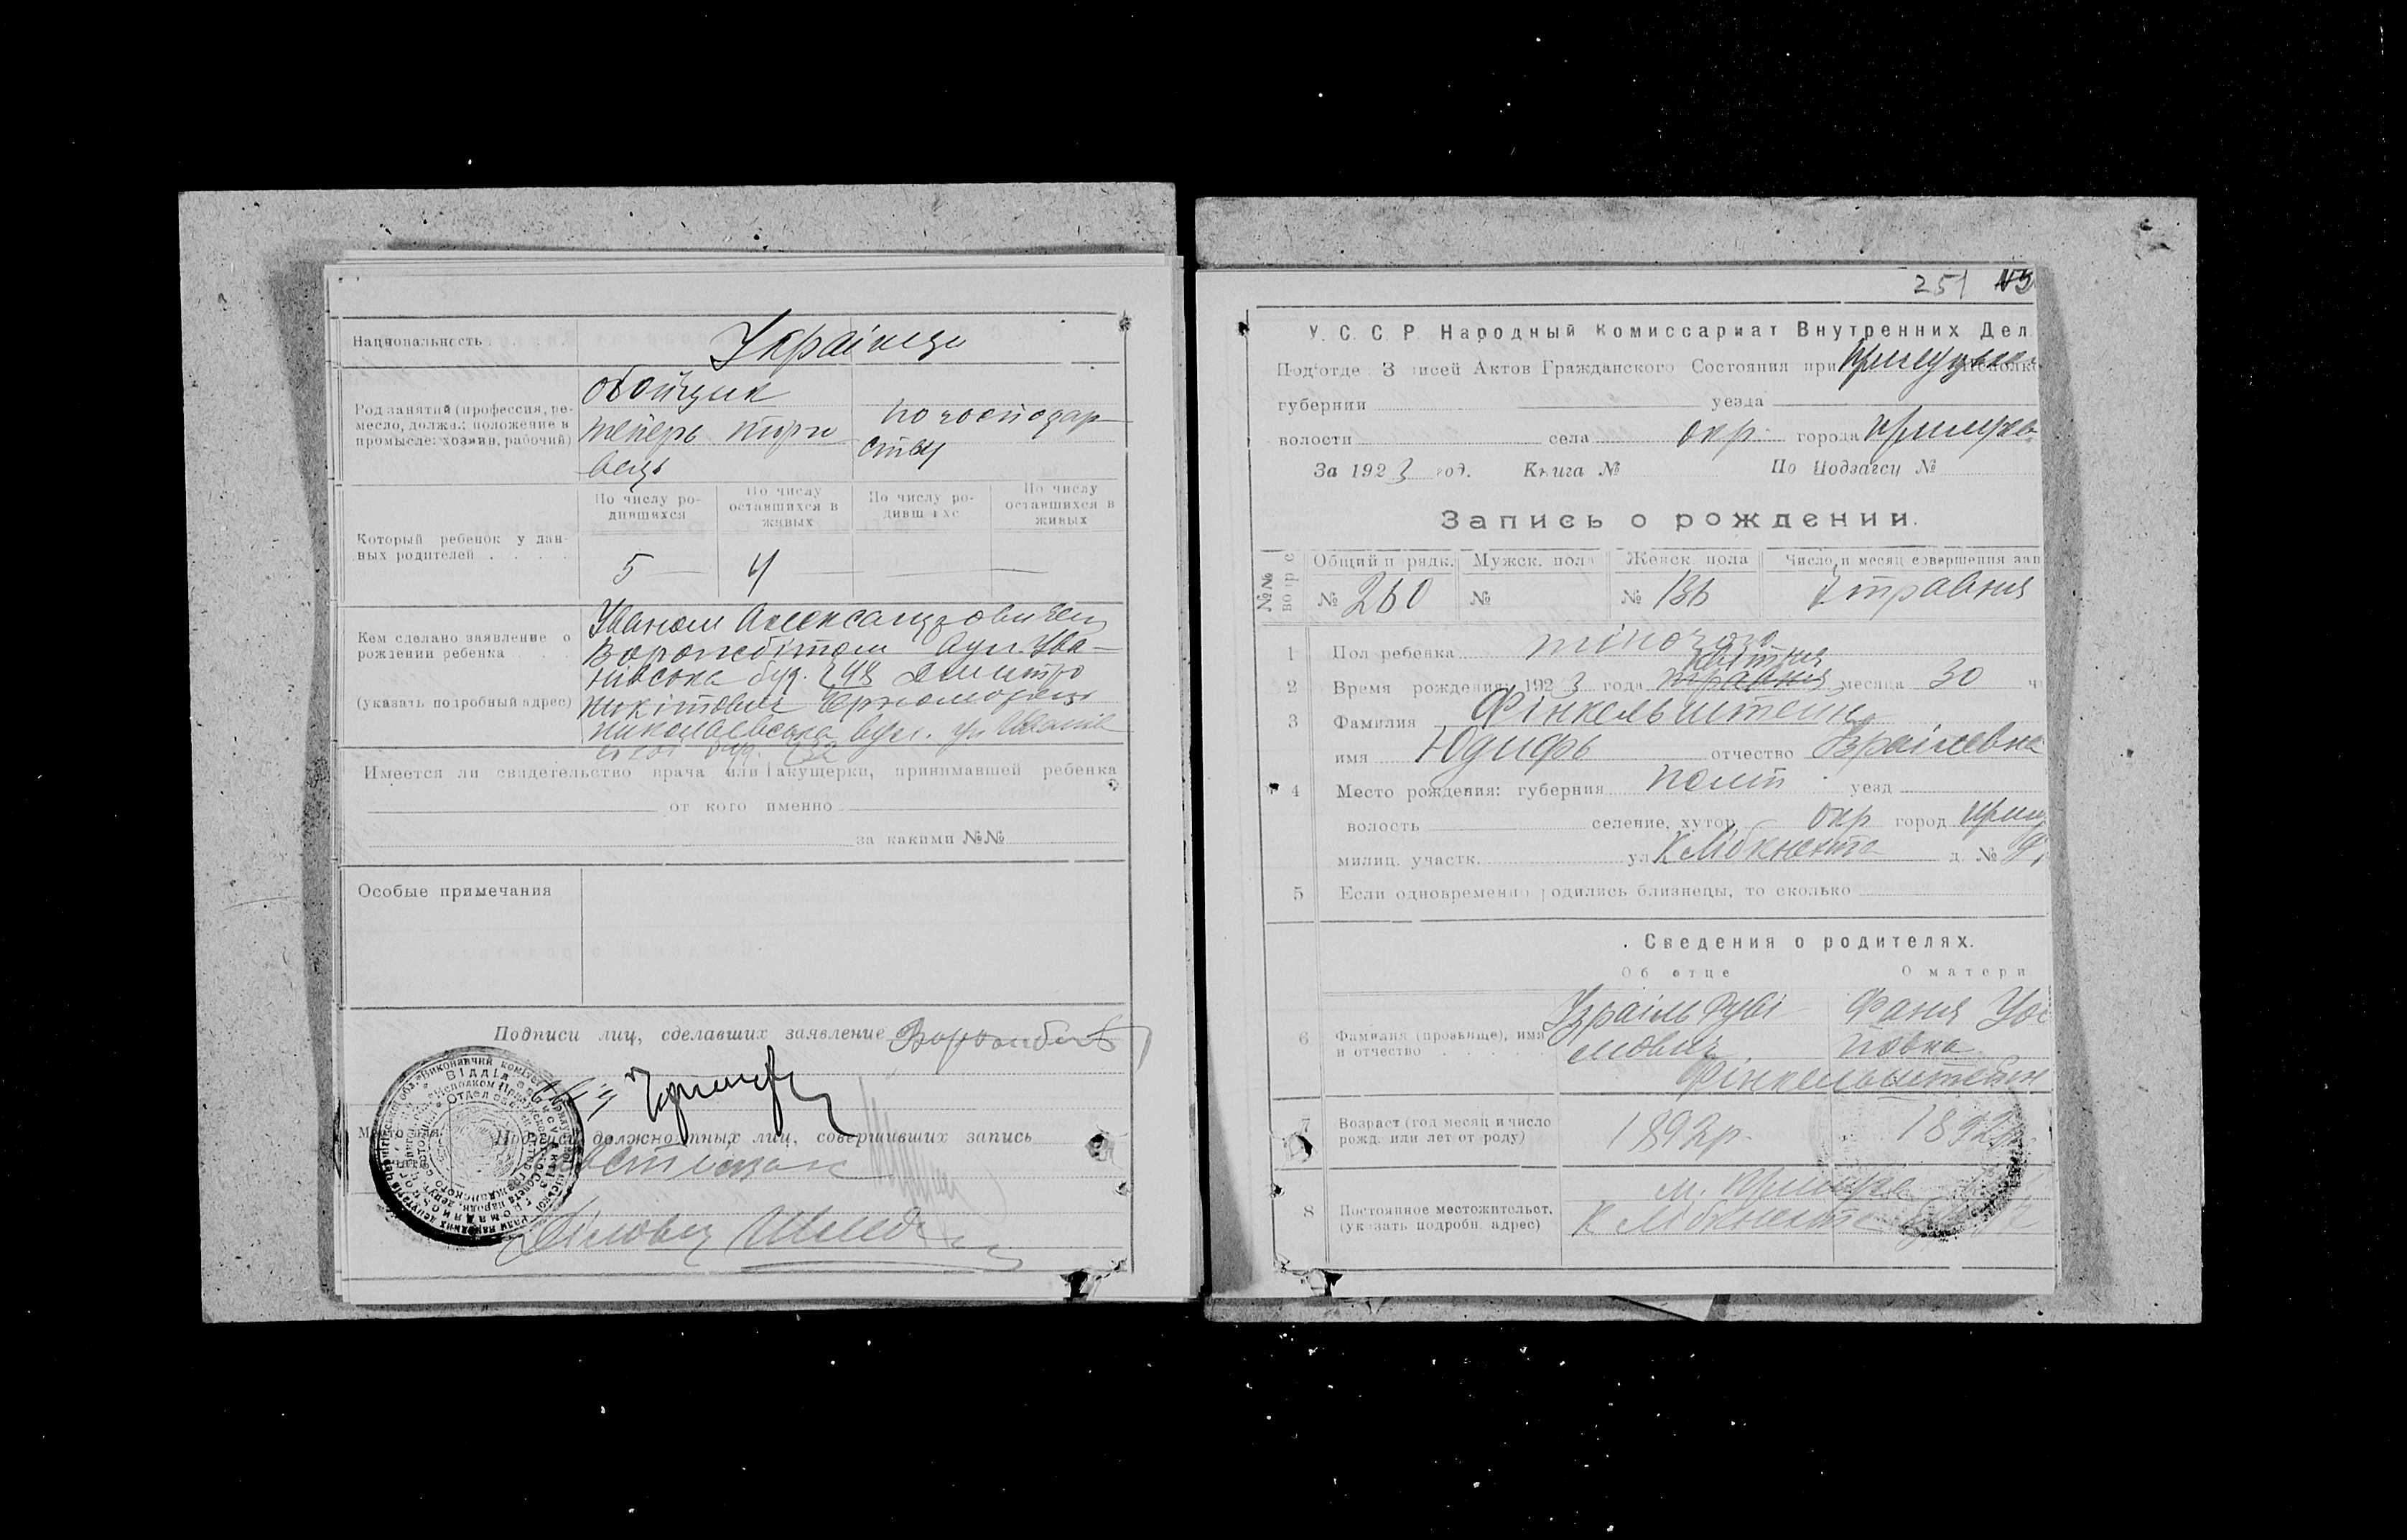 Национальность
Українці
Род занятий (профессия, ре-
месло, должн.; положение в
промысле: хозяин, рабочий)
обойщик
теперь торго
вець
по господар
ству
Который ребенок у дан-
ных родителей . . . .
По числу ро-
дившихся
По числу
оставшихся в
живых
По числу ро-
дивш ихс
По числу
оставшихся в
живых
5
4
Кем сделано заявление о
рождении ребенка . . .
(указать подробный адрес)
Иваном Александровичем
Ворожбітом вул Ива-
нівсока буд. 248 Дмитро
Никітович Чорноморець
Николаевська вул.
Имеется ли свидетельство врача или акушерки, принимавшей ребенка
от кого именно
за какими №№
Особые примечания
Подписи лиц, сделавших заявление
Подписи должностных лиц, совершивших запись
251
У. С. С. Р Народный Комиссариат Внутренних Дел
Под'отде З писей Актов Гражданского Состояния при
губернии уезда
волости села окр. города Прилуки
За 1923 год. Книга № По Подзагсу №
Запись о рождении.
№№
Общий п рядк. Мужск. пола Женск. пола Число и месяц совершения зап
№ 260 № № 136 травня
1 Пол ребенка жіночого
2 Время рождения: 1923 года квітня травня месяца 30
3 Фамилия Фінкельштейн
имя Юдифь отчество Ізраілевна
4 Место рождения: губерния Полт уезд
волость селение, хутор окр город Прил
милиц. участк. ул К Лібкнехта д. №
5 Если одновременно родились близнецы, то сколько
Сведения о родителях.
Об отце
О матери
6 Фамилия (прозвище), имя
и отчество . . . . .
Ізраіль Руві
мович
Фаня Уос
повна
Фінкельштейн
7 Возраст (год месяц и число
рожд. или лет от роду)
1892р.
1892р.
8 Постоянное местожительст.
(указать подробн. адрес)
м. Прилуки
К Лібкнехта